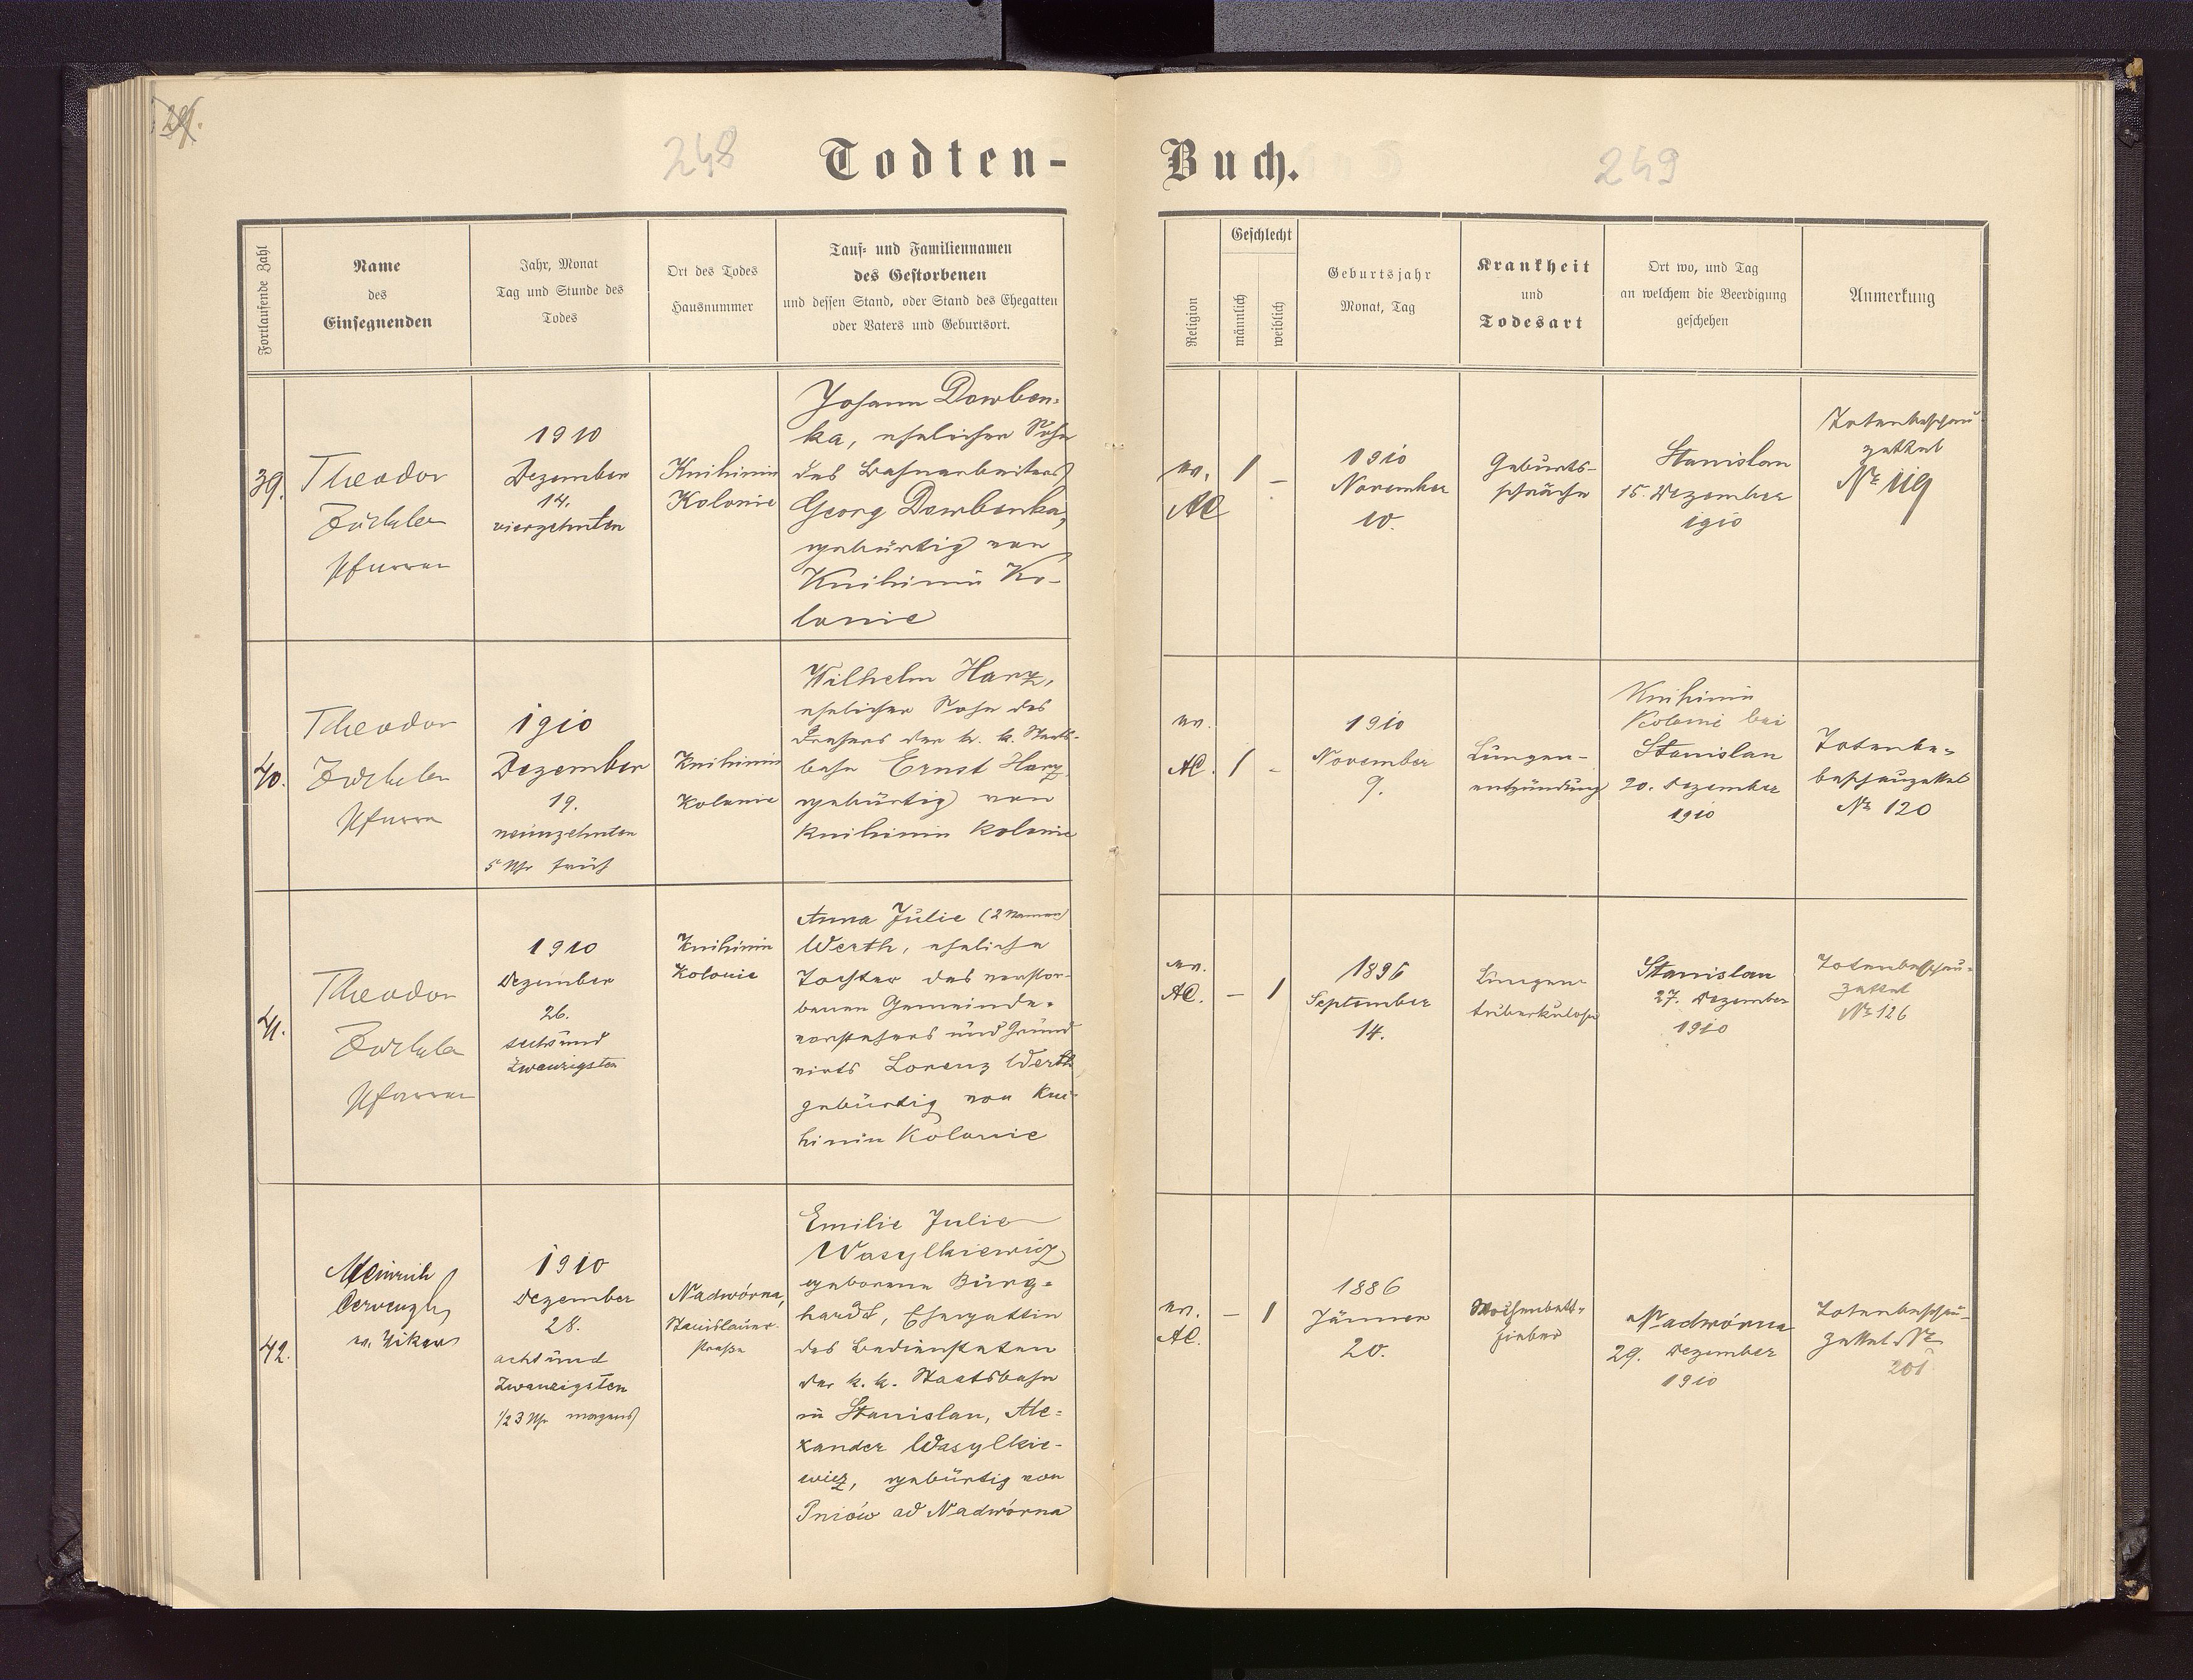 248
Todten-
Buch.
249
Fortlaufende Zahl
Name
des
Einsegnenden
Jahr, Monat
Tag und Stunde des
Todes
Ort des Todes
Hausnummer
Tauf- und Familiennamen
des Gestorbenen
und dessen Stand, oder Stand des Ehegatten
oder Vaters und Geburtsort.
Religion
Geschlecht
männlich
weiblich
Geburtsjahr
Monat, Tag
Krankheit
und
Todesart
Ort wo, und Tag
an welchem die Beerdigung
geschehen
Anmerkung
39.
Theodor
Zöckler
Pfarrer
1910
Dezember
14.
vierzehnten
Knihinin
Kolonie
Johann Dowben-
ka, ehelicher Sohn
des Bahnarbeiters
Georg Dowbenka,
gebürtig von
Knihinin Ko-
lonie
ev.
AC
1
-
1910
November
10.
Geburts-
schwäche
Stanislau
15. Dezember
1910
Totenbeschau-
zettel
Nr 119
40.
Theodor
Zöckler
Pfarrer
1910
Dezember
19.
neunzehnten
5 Uhr früh
Knihinin
Kolonie
Wilhelm Harz,
ehelicher Sohn des
Drehers der k. k. Staats-
bahn Ernst Harz
gebürtig von
Knihinin Kolonie
ev.
AC.
1
-
1910
November
9.
Lungen-
entzündung
Knihinin
Kolonie bei
Stanislau
20. Dezember
1910
Totenbe-
beschauzettel
Nr 120
41.
Theodor
Zöckler
Pfarrer
1910
Dezember
26.
sechsund
zwanzigsten
Knihinin
Kolonie
Anna Julie (2 Namen)
Werth, eheliche
Tochter des verstor-
benen Gemeinde-
vorstehers und Grund
wirts Lorenz Werth
gebürtig von Kni-
hinin Kolonie
ev.
AC.
-
1
1896
September
14.
Lungen-
tuberkulose
Stanislau
27. Dezember
1910
Totenbeschau-
zettel
Nr 126
42.
Heinrich
ev. Vikar
1910
Dezember
28.
achtund
zwanzigsten
1/2 3 Uhr morgens
Nadwórna,
Stanislauer-
straße
Emilie Julie
Wasylkiewicz
geborene Burg-
hardt, Ehegattin
des Bediensteten
der k. k. Staatsbahn
in Stanislau, Ale-
xander Wasylkie-
wicz, gebürtig von
Pniów ad Nadwórna
ev.
AC.
-
1
1886
Jänner
20.
Wochenbett-
fieber
Nadwórna
29. Dezember
1910
Totenbeschau-
zettel Nr
201